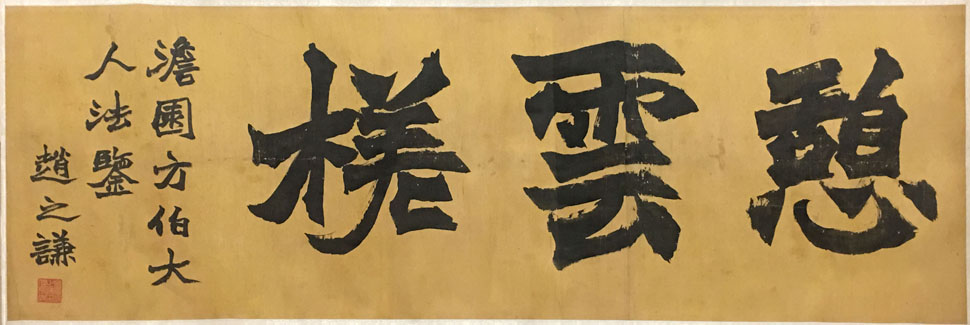 憇雲槎
澹園方伯大
人法鑒
趙之謙